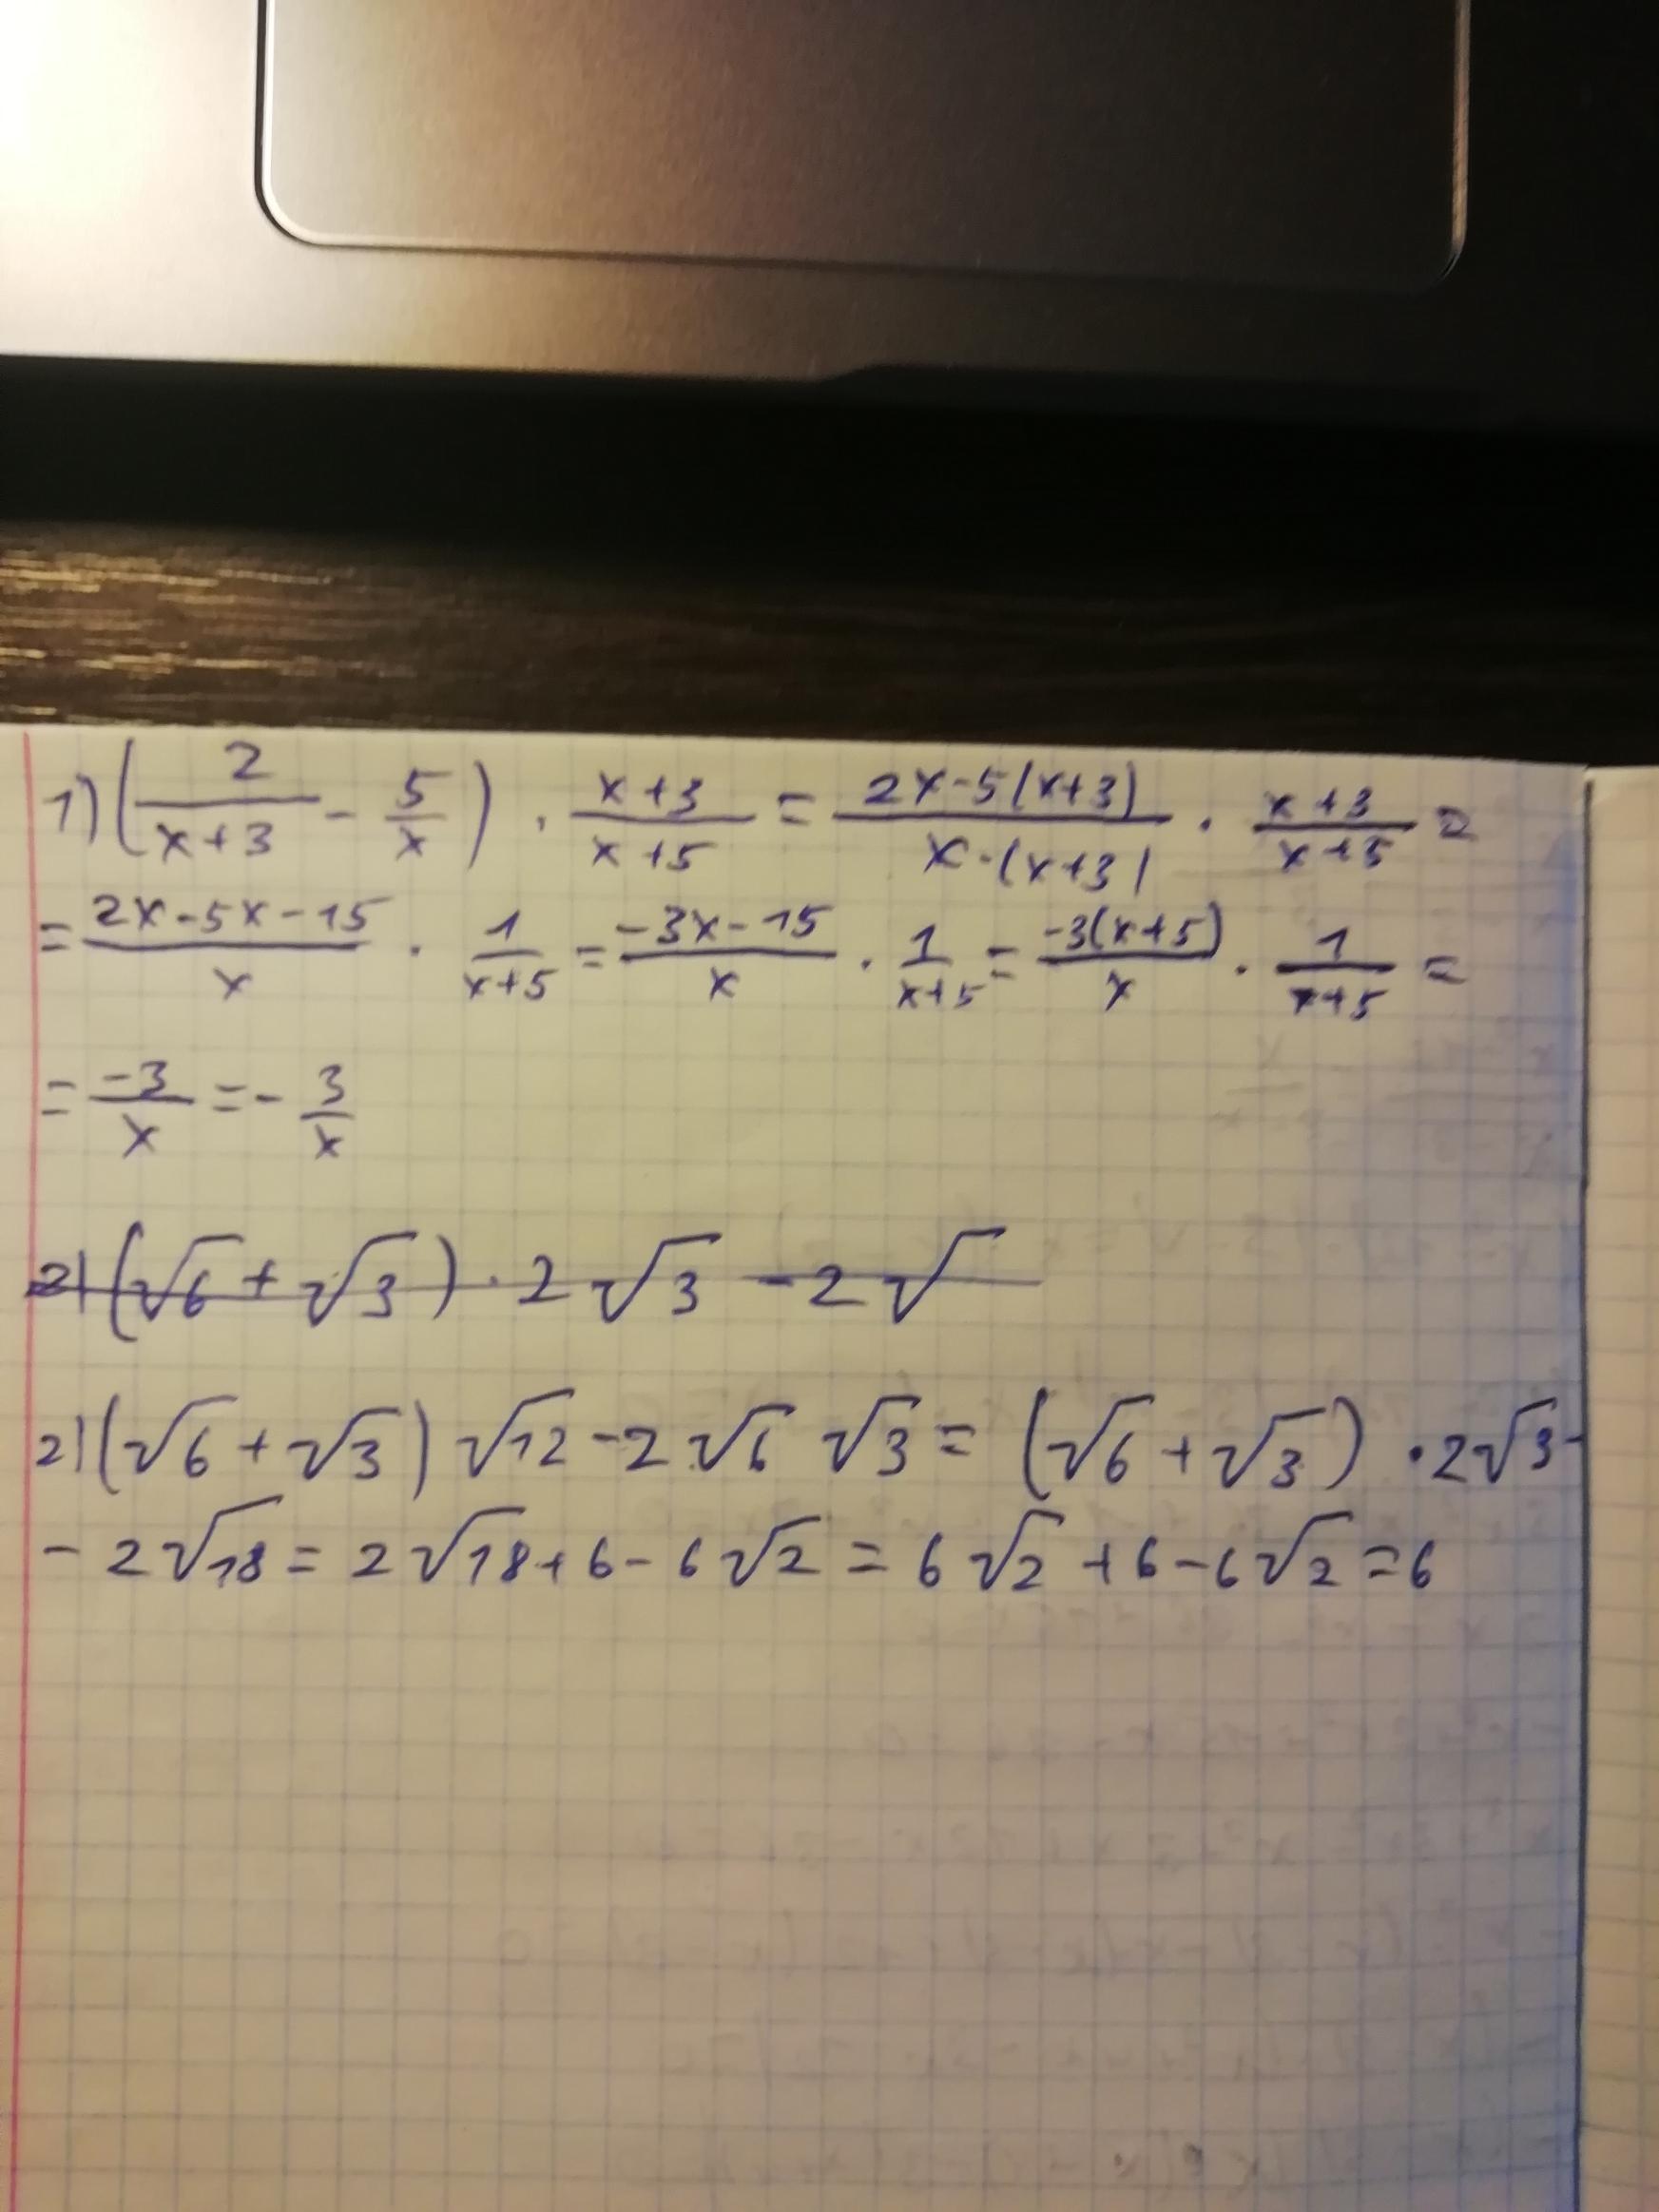 1) (2/(x+3) - 5/x) · (x+3)/(x+5) = (2x-5(x+3))/(x·(x+3)) · (x+3)/(x+5) =
= (2x-5x-15)/x · 1/(x+5) = (-3x-15)/x · 1/(x+5) = (-3(x+5))/x · 1/(x+5) =
= -3/x = - 3/x
2) (√6 + √3) · 2√3 - 2√
2) (√6 + √3) √12 - 2√6 √3 = (√6 + √3) · 2√3 -
- 2√18 = 2√18 + 6 - 6√2 = 6√2 + 6 - 6√2 = 6